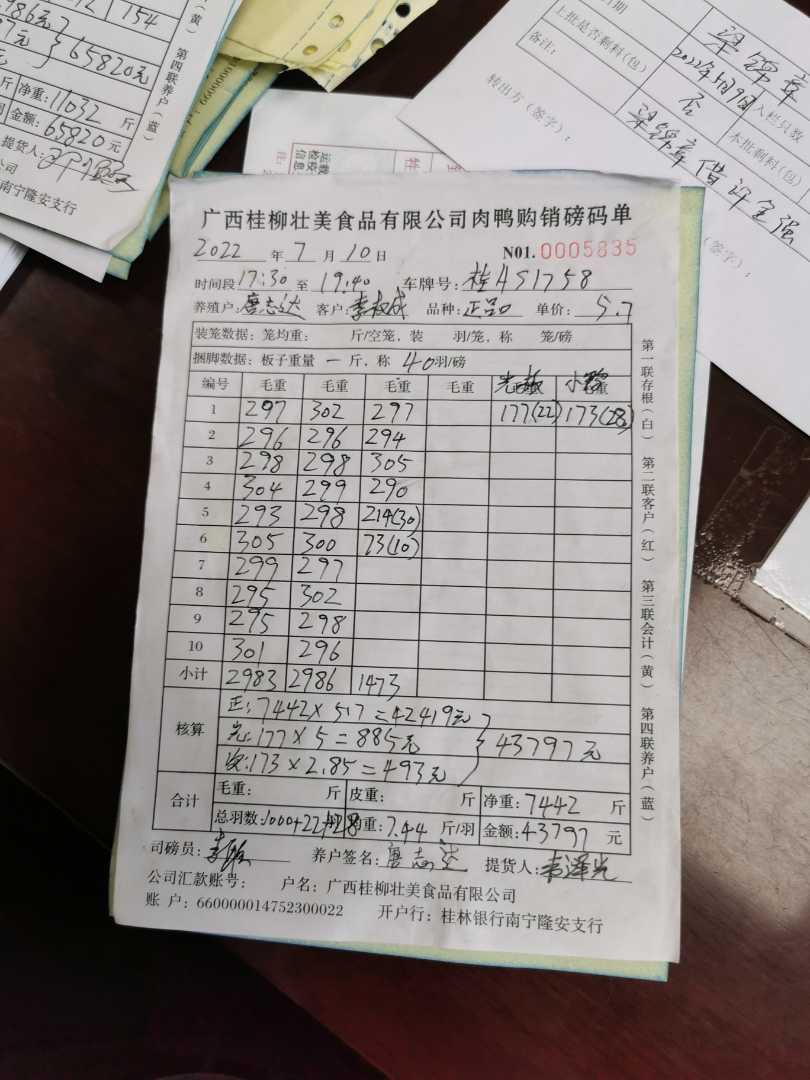 广西桂柳壮美食品有限公司肉鸭购销磅码单
2022 年 7 月 10 日 N01.0005835
时间段 17:30 至 19:40 车牌号: 桂AS1758
养殖户: 唐志达 客户: 李权成 品种: 正品 单价: 5.7
装笼数据: 笼均重: 斤/空笼, 装 羽/笼, 称 笼/磅
捆脚数据: 板子重量 一 斤, 称 40 羽/磅
编号 毛重 毛重 毛重 毛重
1 297 302 297 177(22) 173(28)
2 296 296 294
3 298 298 305
4 304 299 290
5 293 298 214(30)
6 305 300 73(10)
7 299 297
8 295 302
9 295 298
10 301 296
小计 2983 2986 1473
核算
正: 7442×5.7=42419元
光: 177×5=885元
次: 173×2.85=493元
43797元
合计
毛重: 斤 皮重: 斤 净重: 7442 斤
总羽数: 1000+22+28 均重: 7.44 斤/羽 金额: 43797 元
司磅员: 养户签名: 唐志达 提货人: 韦泽光
公司汇款账号: 户名: 广西桂柳壮美食品有限公司
账 户: 660000014752300022 开户行: 桂林银行南宁隆安支行
第一联存根(白) 第二联客户(红) 第三联会计(黄) 第四联养户(蓝)
154
65820元
斤 净重: 11032 斤
金额: 65820 元
提货人:
公司
南宁隆安支行
(黄) 第四联养户(蓝)
日期 梁锦章
上批是否剩料(包) 2022年5月9日 入栏只数
备注: 否 本批剩料(包)
转出方(签字): 梁锦章借许全强
(签字):